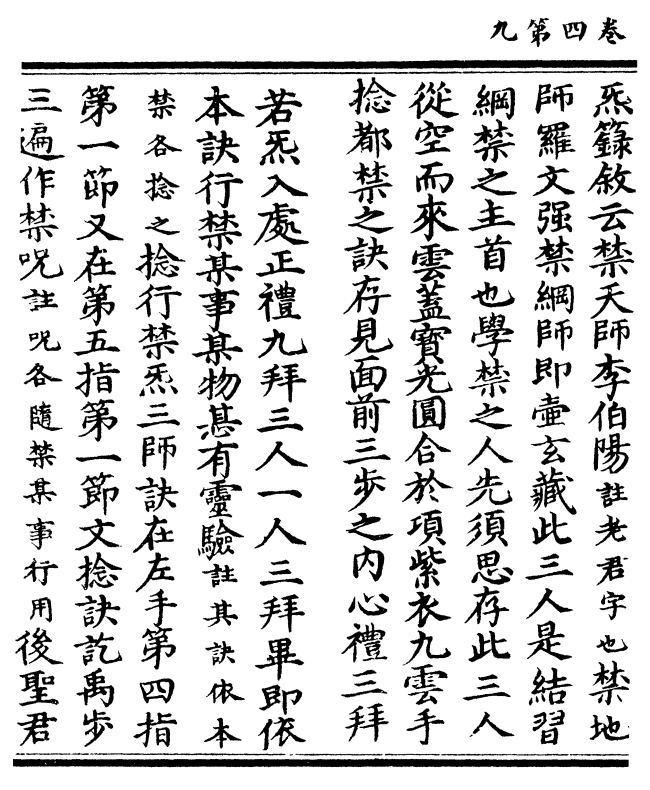 卷四第九
炁籙敘云禁天師李伯陽註老君字也禁地
師羅文强禁綱師即壷玄藏此三人是結習
綱禁之主首也學禁之人先須思存此三人
從空而來雲蓋寶光圓合於項紫衣九雲手
捻都禁之訣存見面前三步之内心禮三拜
若炁入處正禮九拜三人一人三拜畢即依
本訣行禁某事某物悬有靈驗註其訣依本
禁各捻之捻行禁炁三師訣在左手第四指
第一節又在第五指第一節文捻訣訖禹步
三遍作禁呪註呪各隨禁某事行用後聖君